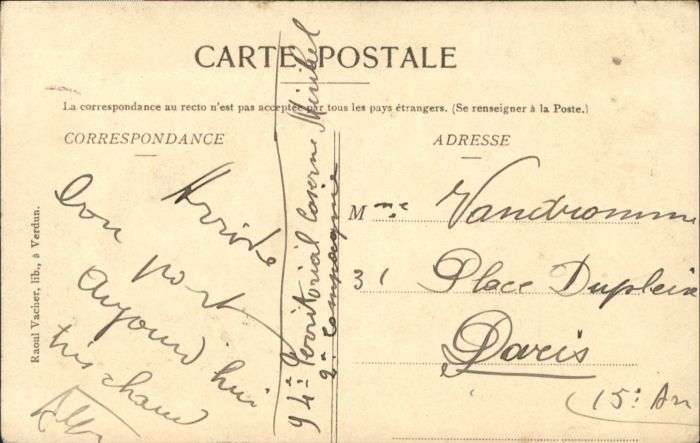 CARTE POSTALE
La correspondance au recto n'est pas acceptée par tous les pays étrangers. (Se renseigner à la Poste.)
CORRESPONDANCE
Arrivée
bon port
aujourd'hui
tres chaud
94e Territorial Caserne Miribel
2e Compagnie
Raoul Vacher, lib., à Verdun.
ADRESSE
Mme Vandromme
31 Place Dupleix
Paris
15e Arr